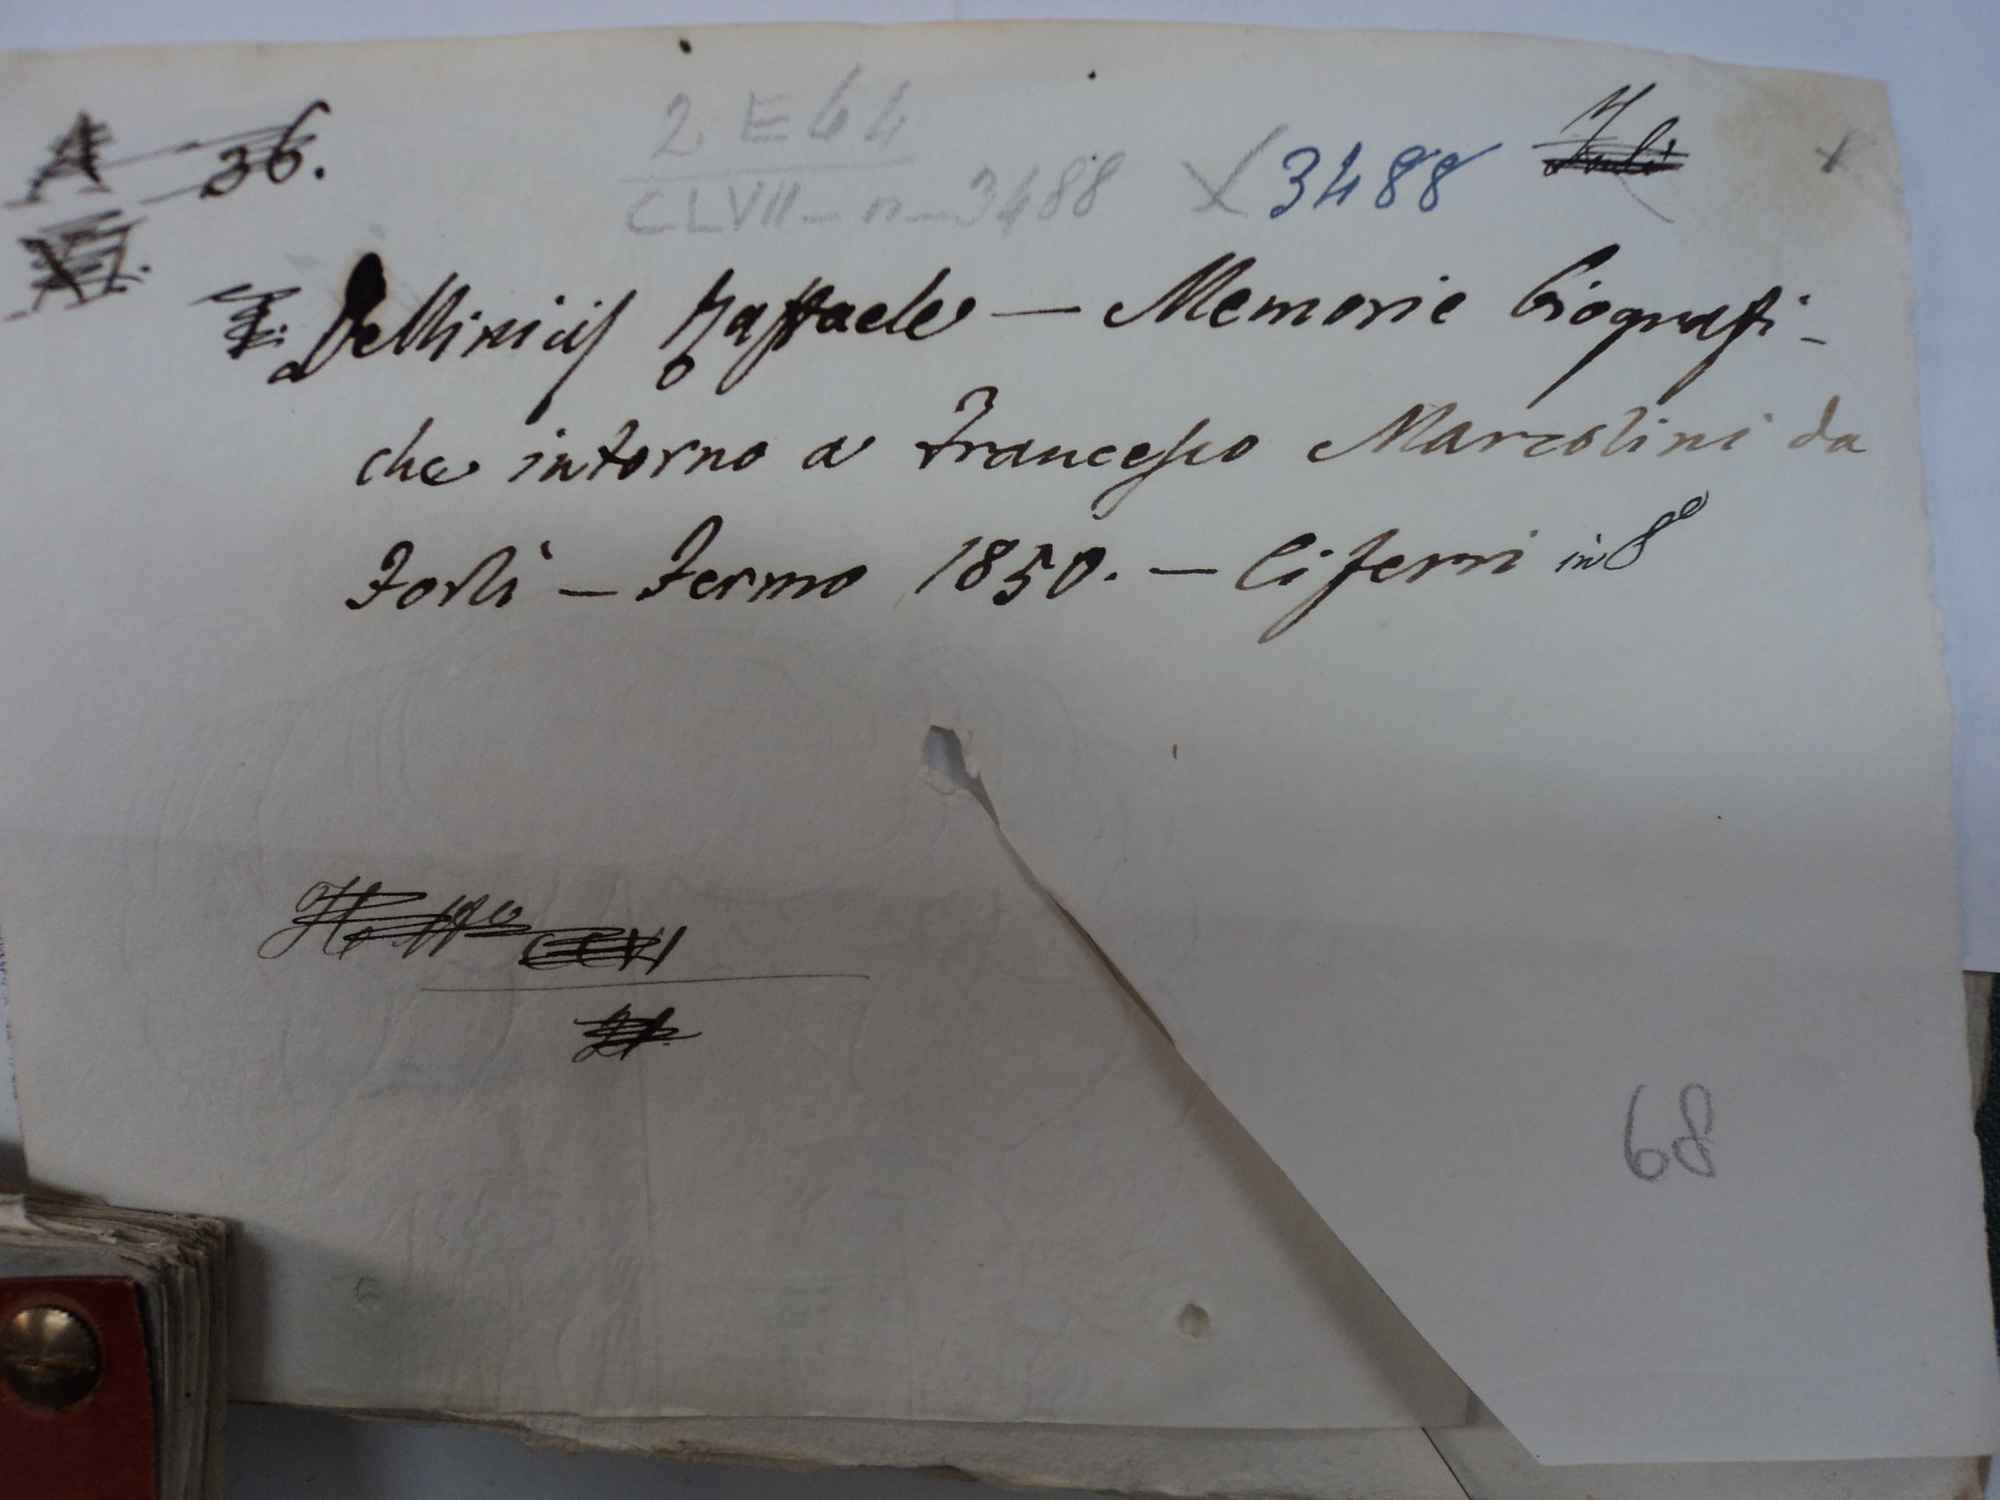 A 36.
2 E 64
CLVII - n - 3488 X 3488
XI.
De Minicis Raffaele — Memorie biografi-
che intorno a Francesco Marcolini da
Forlì — Fermo 1850. — Ciferri in 8º
68